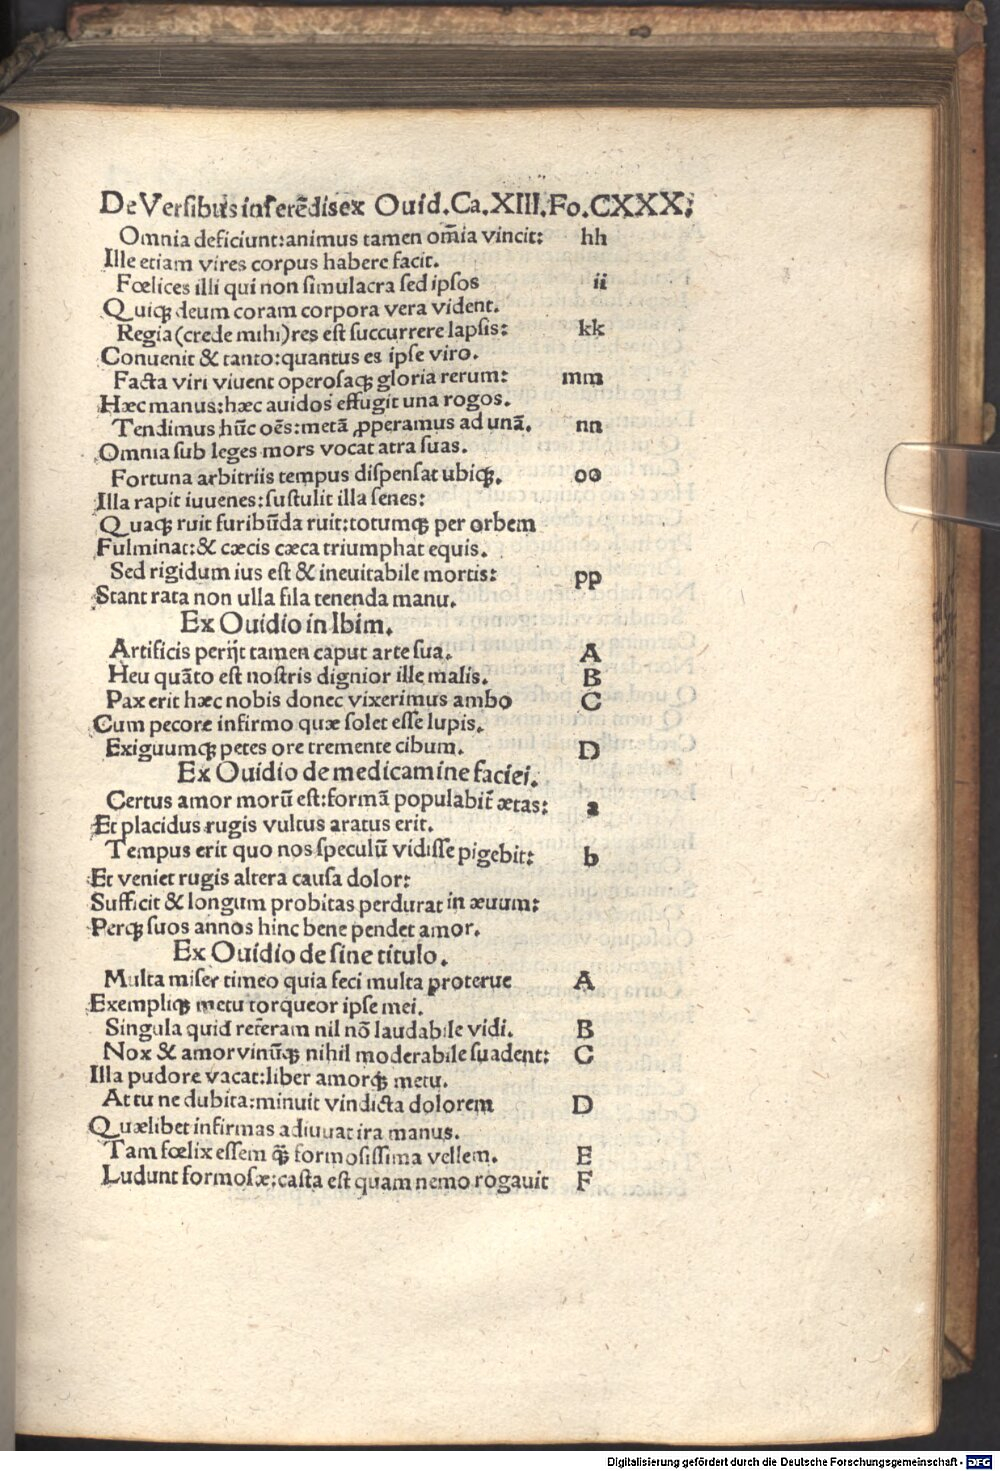 De Versibus inserẽdis ex Ouid.Ca.XIII.Fo.CXXX.
Omnia deficiunt:animus tamen om̃ia vincit: hh
Ille etiam vires corpus habere facit.
Fœlices illi qui non simulacra sed ipsos ii
Quiqꝫ deum coram corpora vera vident.
Regia(crede mihi)res est succurrere lapsis: kk
Conuenit & tanto:quantus es ipse viro.
Facta viri viuent operosaqꝫ gloria rerum: mm
Hæc manus:hæc auidos effugit una rogos.
Tendimus hũc oẽs:metã ꝓperamus ad unã. nn
Omnia sub leges mors vocat atra suas.
Fortuna arbitriis tempus dispensat ubiqꝫ. oo
Illa rapit iuuenes:sustulit illa senes:
Quaqꝫ ruit furibũda ruit:totumqꝫ per orbem
Fulminat:& cæcis cæca triumphat equis.
Sed rigidum ius est & ineuitabile mortis: pp
Stant rata non ulla fila tenenda manu.
Ex Ouidio in Ibim.
Artificis perijt tamen caput arte sua. A
Heu quãto est nostris dignior ille malis. B
Pax erit hæc nobis donec vixerimus ambo C
Cum pecore infirmo quæ solet esse lupis.
Exiguumqꝫ petes ore tremente cibum. D
Ex Ouidio de medicamine faciei.
Certus amor morũ est:formã populabit̃ ætas: a
Et placidus rugis vultus aratus erit.
Tempus erit quo nos speculũ vidisse pigebit: b
Et veniet rugis altera causa dolor:
Sufficit & longum probitas perdurat in æuum:
Perqꝫ suos annos hinc bene pendet amor.
Ex Ouidio de sine titulo.
Multa miser timeo quia feci multa proterue A
Exempliqꝫ metu torqueor ipse mei.
Singula quid referam nil nõ laudabile vidi. B
Nox & amor vinũqꝫ nihil moderabile suadent: C
Illa pudore vacat:liber amorqꝫ metu.
At tu ne dubita:minuit vindicta dolorem D
Quælibet infirmas adiuuat ira manus.
Tam fœlix essem q̃ꝫ formosissima vellem. E
Ludunt formosæ:casta est quam nemo rogauit F
Digitalisierung gefördert durch die Deutsche Forschungsgemeinschaft - DFG